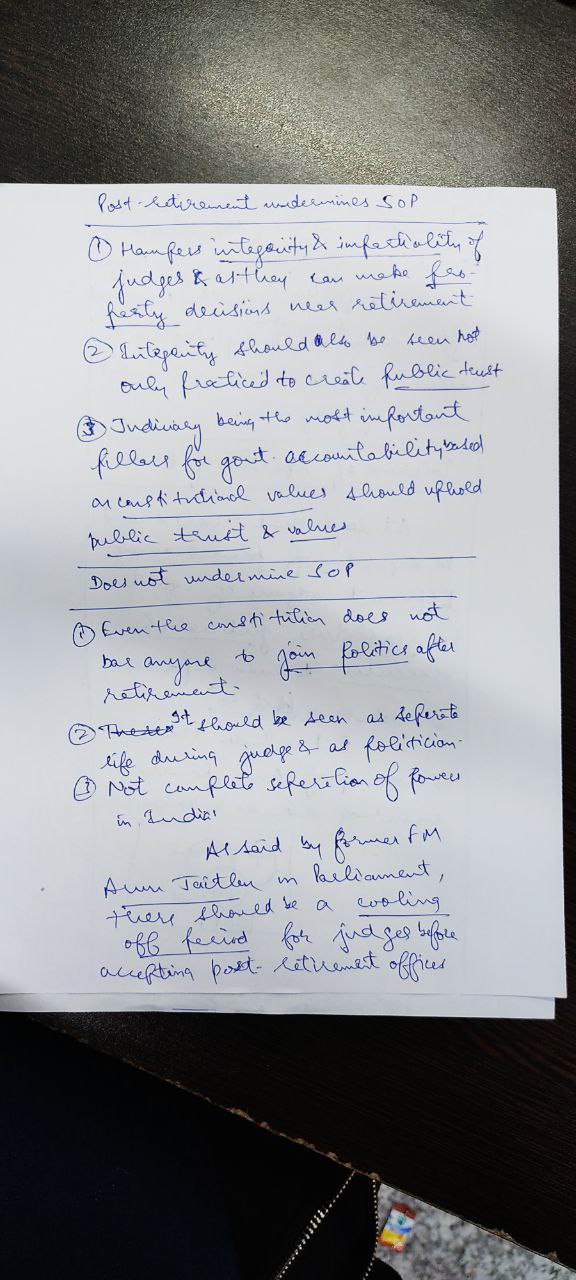 Post-retirement undermines SOP
① Hampers integrity & impartiality of
judges & as they can make pro-
party decisions near retirement
② Integrity should also be seen not
only practiced to create public trust
③ Judiciary being the most important
pillars for govt. accountability based
on constitutional values should uphold
public trust & values
Does not undermine SOP
① Even the constitution does not
bar anyone to join politics after
retirement.
② These It should be seen as seperate
life during judge & as politician.
③ Not complete seperation of powers
in India.
As said by former FM
Arun Jaitley in Parliament,
there should be a cooling
off period for judges before
accepting post-retirement offices